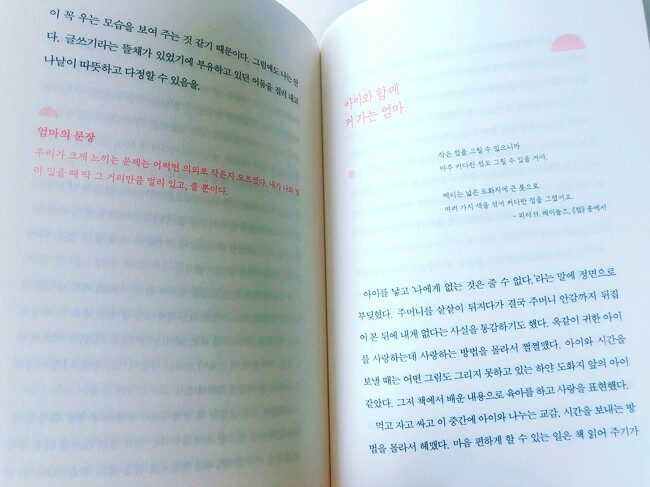 이 꼭 우는 모습을 보여 주는 것 같기 때문이다. 그럼에도 나는 안
다. 글쓰기라는 뜰채가 있었기에 부유하고 있던 어둠을 걸러 내고
나날이 따뜻하고 다정할 수 있음을.
엄마의 문장
우리가 크게 느끼는 문제는 어쩌면 의외로 작은지 모르겠다. 내가 나와 멀
리 있을 때 딱 그 거리만큼 멀리 있고, 클 뿐이다.
아이와 함께
커 가는 엄마
작은 점을 그릴 수 있으니까
아주 커다란 점도 그릴 수 있을 거야.
베티는 넓은 도화지에 큰 붓으로
여러 가지 색을 섞어 커다란 점을 그렸어요.
- 피터 H. 레이놀즈, 《점》 중에서
아이를 낳고 '나에게 없는 것은 줄 수 없다.'라는 말에 정면으로
부딪혔다. 주머니를 샅샅이 뒤지다가 결국 주머니 안감까지 뒤집
어 본 뒤에 내게 없다는 사실을 통감하기도 했다. 옥같이 귀한 아이
를 사랑하는데 사랑하는 방법을 몰라서 쩔쩔맸다. 아이와 시간을
보낼 때는 어떤 그림도 그리지 못하고 있는 하얀 도화지 앞의 아이
같았다. 그저 책에서 배운 내용으로 육아를 하고 사랑을 표현했다.
먹고 자고 싸고 이 중간에 아이와 나누는 교감, 시간을 보내는 방
법을 몰라서 헤맸다. 마음 편하게 할 수 있는 일은 책 읽어 주기가